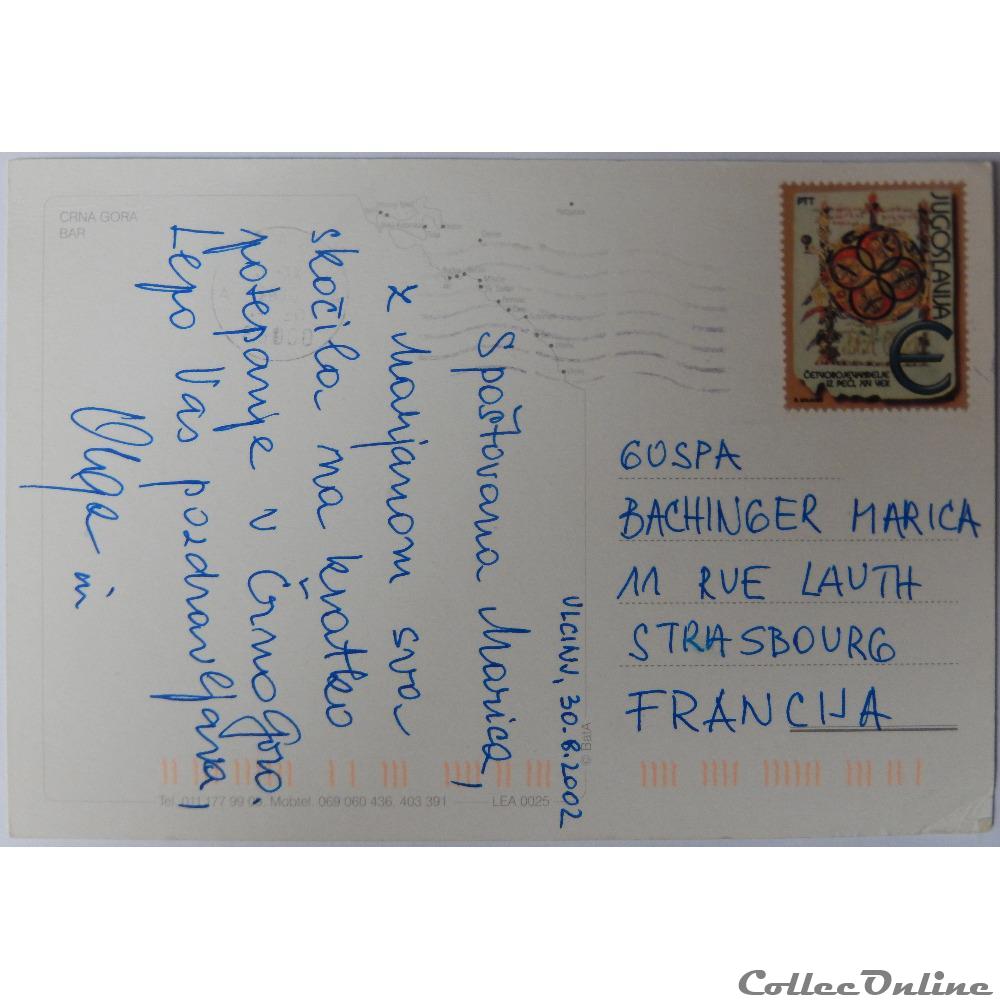 CRNA GORA
BAR
PTT
JUGOSLAVIJA
ČETVOROJEVANĐELJE
IZ PEĆI, XIV VEK
E
ULCINJ, 30.8.2002
Spoštovana Marica,
z Marjanom sva
skočila na kratko
potepanje v Črno Goro.
Lepo Vas pozdravljava,
Olga in
GOSPA
BACHINGER MARICA
11 RUE LAUTH
STRASBOURG
FRANCIJA
© BatA
Tel. 011 177 99 Mobtel. 069 060 436, 403 391
LEA 0025
CollecOnline